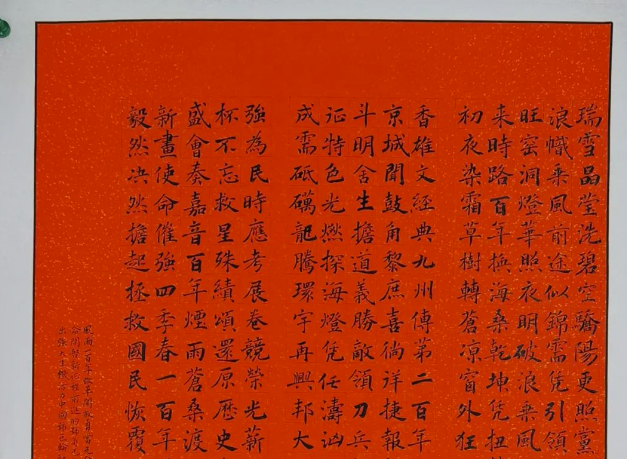 瑞雪晶莹洗碧空驕陽更照黨
浪幟乘風前途似錦需凭引領
旺窑洞燈華照夜明破浪乘風
来時路百年換海桑乾坤凭扭
初夜染霜草樹轉蒼凉窗外狂
香雄文經典九州傳第二百年
京城閙鼓角黎庶喜徜徉捷報
斗明舍生擔道義勝敵領刀兵
征特色光燃探海燈凭任濤汹
成需砥礪龍騰環宇再興邦大
強為民時應考展卷競榮光薪
杯不忘救星殊績頌還原歷史
盛會奏嘉音百年煙雨蒼桑渡
新畫使命催強四季春一百年
毅然决然擔起拯救國民恢覆